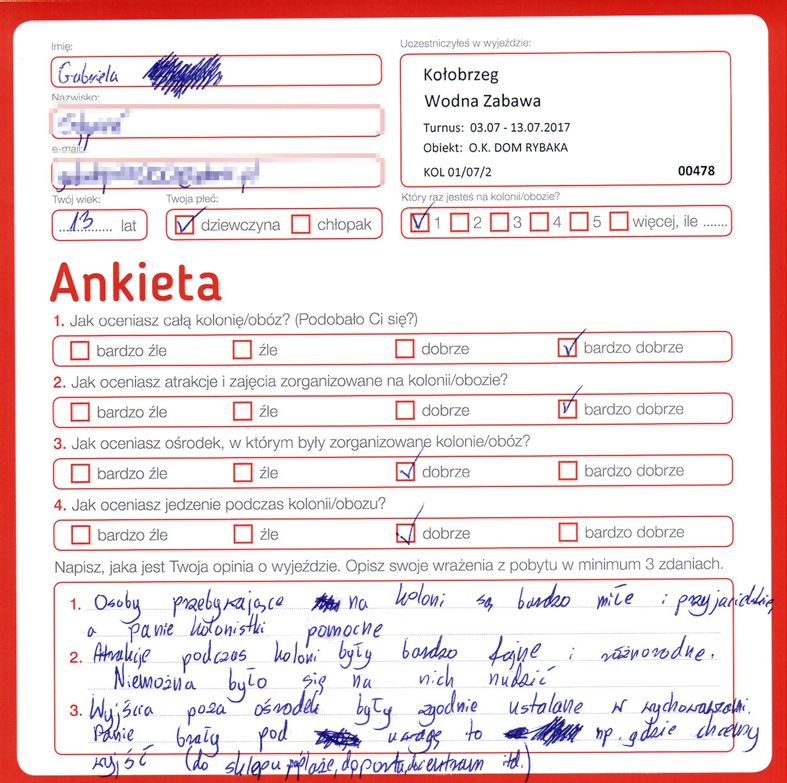 Imię:
Gabriela
Uczestniczyłeś w wyjeździe:
Kołobrzeg
Wodna Zabawa
Turnus: 03.07 - 13.07.2017
Obiekt: O.K. DOM RYBAKA
KOL 01/07/2 00478
Nazwisko:
e-mail:
Twój wiek:
13 lat
Twoja płeć:
dziewczyna chłopak
Który raz jesteś na kolonii/obozie?
1 2 3 4 5 więcej, ile .......
Ankieta
1. Jak oceniasz całą kolonię/obóz? (Podobało Ci się?)
bardzo źle źle dobrze bardzo dobrze
2. Jak oceniasz atrakcje i zajęcia zorganizowane na kolonii/obozie?
bardzo źle źle dobrze bardzo dobrze
3. Jak oceniasz ośrodek, w którym były zorganizowane kolonie/obóz?
bardzo źle źle dobrze bardzo dobrze
4. Jak oceniasz jedzenie podczas kolonii/obozu?
bardzo źle źle dobrze bardzo dobrze
Napisz, jaka jest Twoja opinia o wyjeździe. Opisz swoje wrażenia z pobytu w minimum 3 zdaniach.
1. Osoby przebywające na koloni są bardzo miłe i przyjacielskie,
a panie kolonistki pomocne
2. Atrakcje podczas koloni były bardzo fajne i różnorodne.
Niemożna było się na nich nudzić
3. Wyjścia poza ośrodek były zgodnie ustalane w wychowawcami.
Panie brały pod uwagę to np. gdzie chcemy
wyjść (do sklepu, plaże, do portu, do centrum itd.)